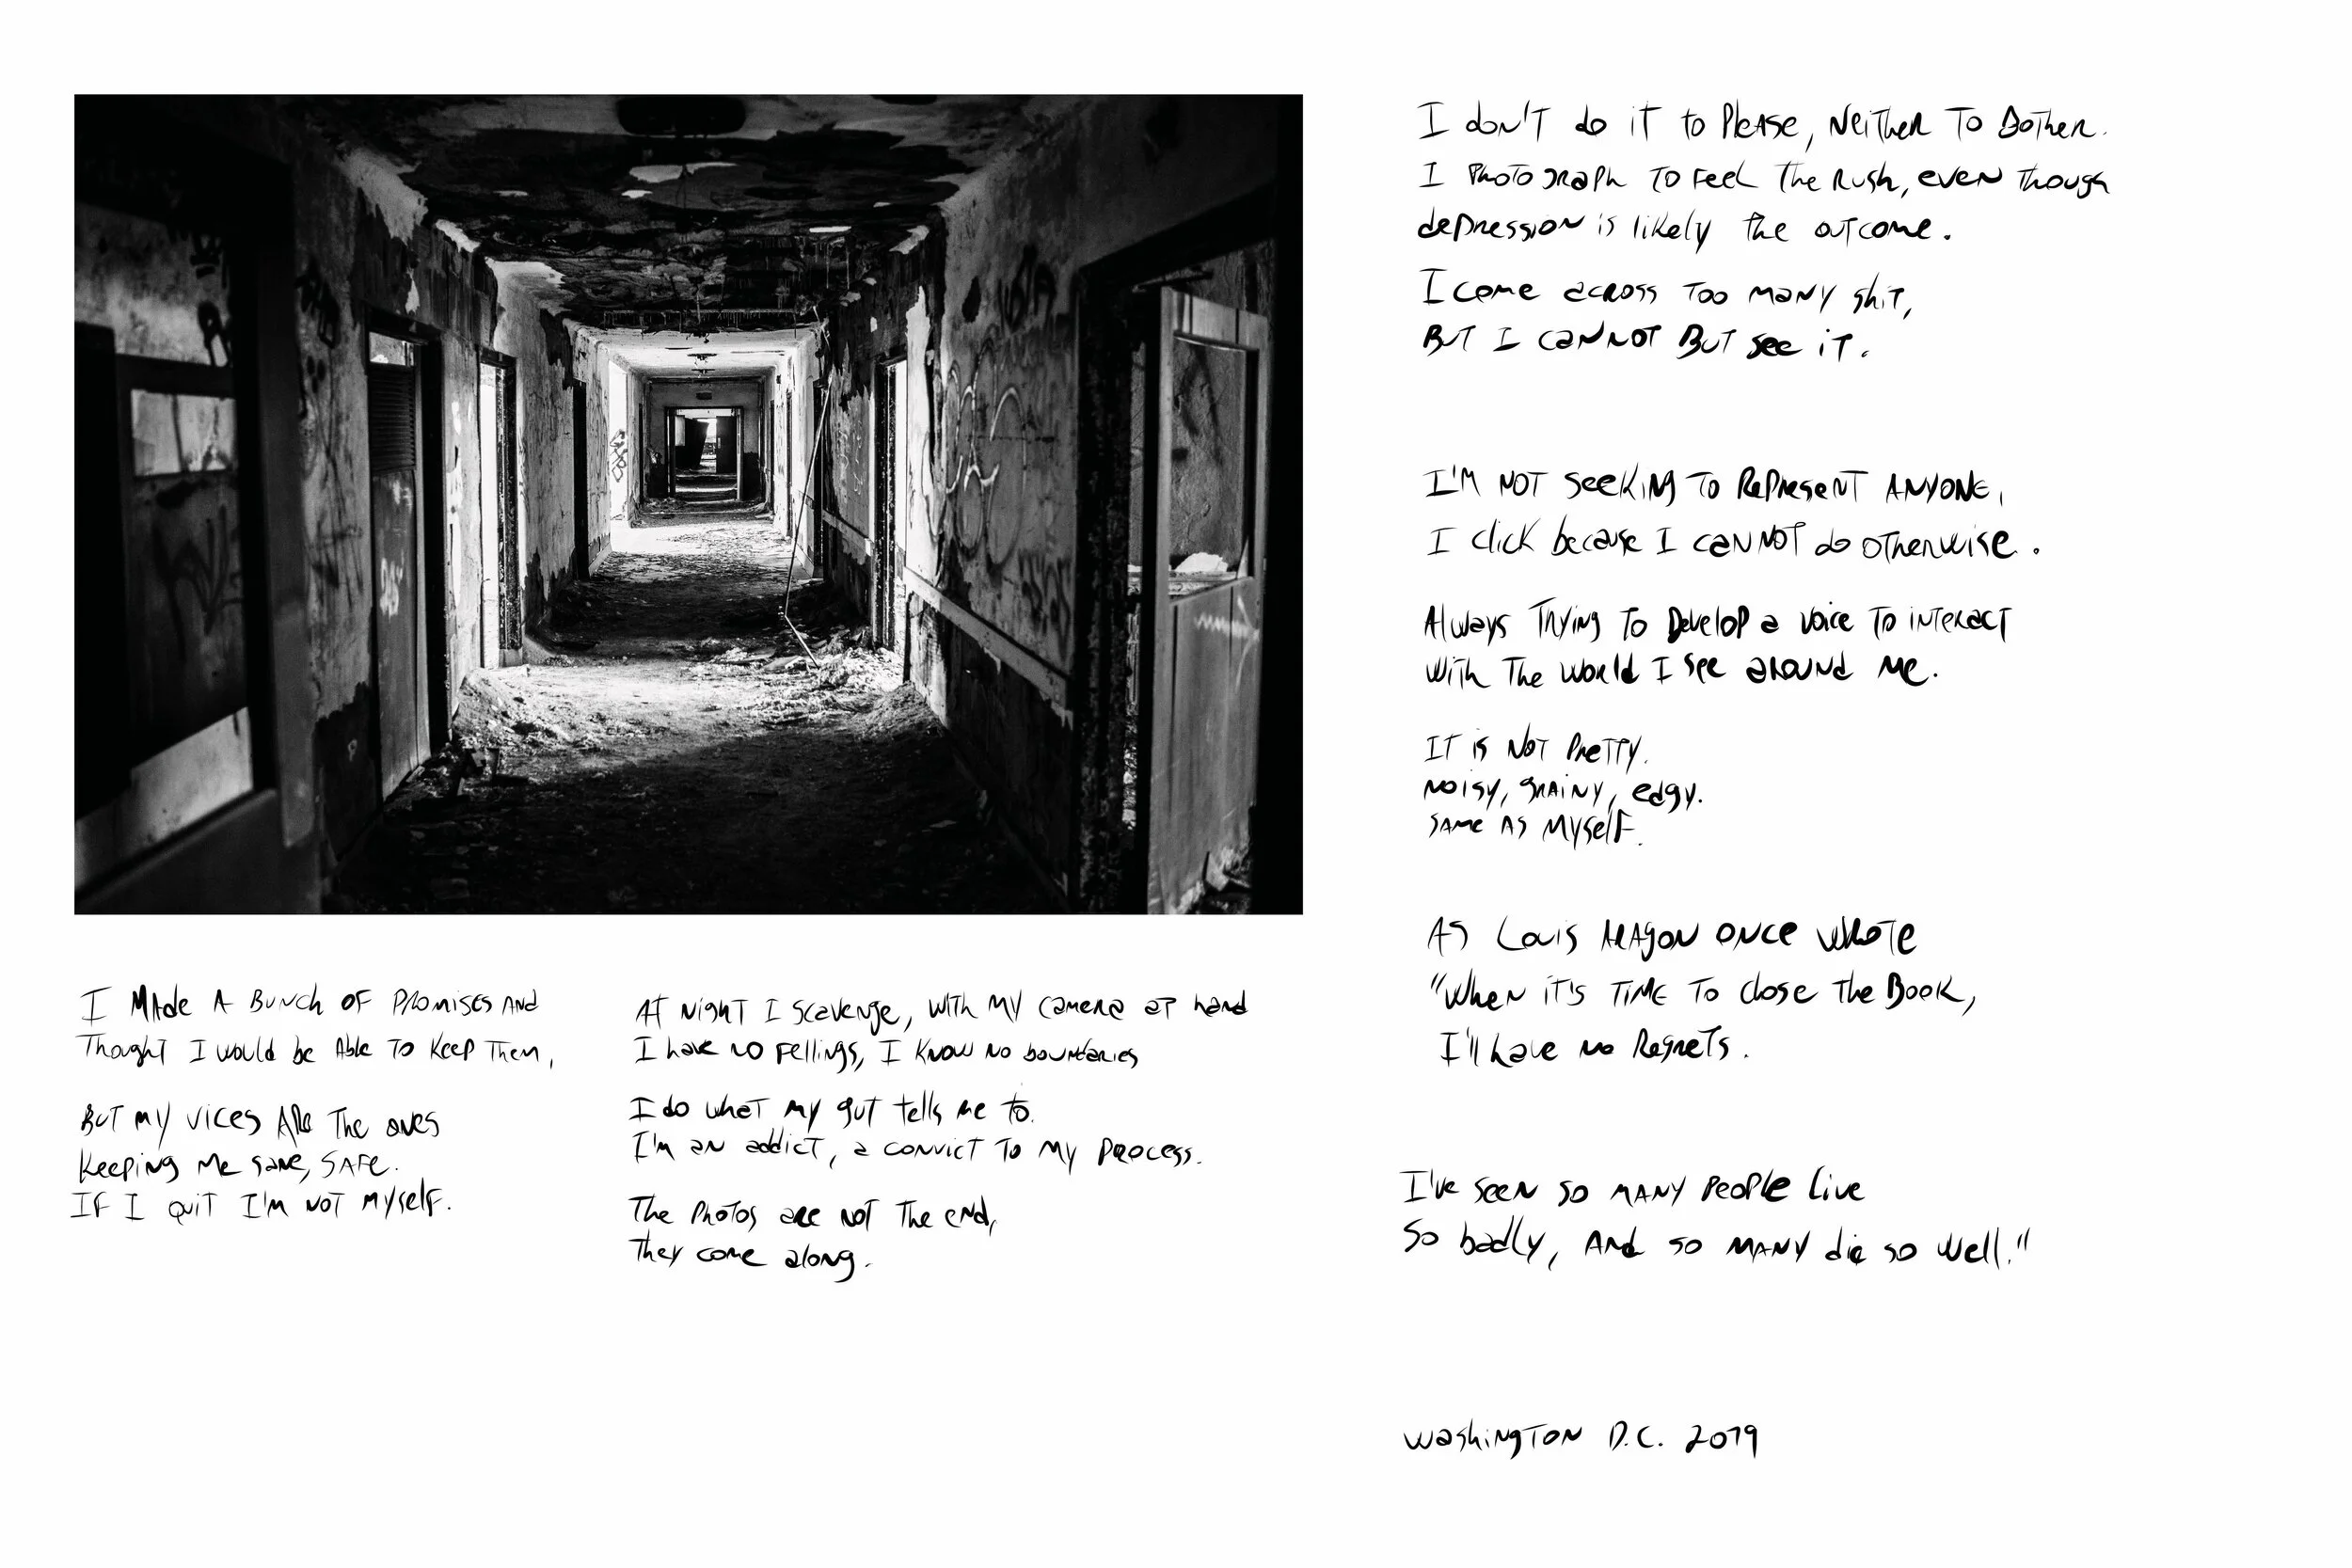 I made a bunch of promises and
thought I would be able to keep them,
But my vices are the ones
keeping me sane, safe.
If I quit I'm not myself.
At night I scavenge, with my camera at hand
I have no fellings, I know no boundaries
I do what my gut tells me to.
I'm an addict, a convict to my process.
The photos are not the end,
they come along.
I don't do it to please, neither to bother.
I photograph to feel the rush, even though
depression is likely the outcome.
I come across too many shit,
But I cannot but see it.
I'm not seeking to represent anyone,
I click because I cannot do otherwise.
Always trying to develop a voice to interact
with the world I see around me.
It is not pretty.
Noisy, grainy, edgy.
Same as myself.
As Louis Aragon once wrote
"When it's time to close the book,
I'll have no regrets.
I've seen so many people live
so badly, and so many die so well."
Washington D.C. 2019